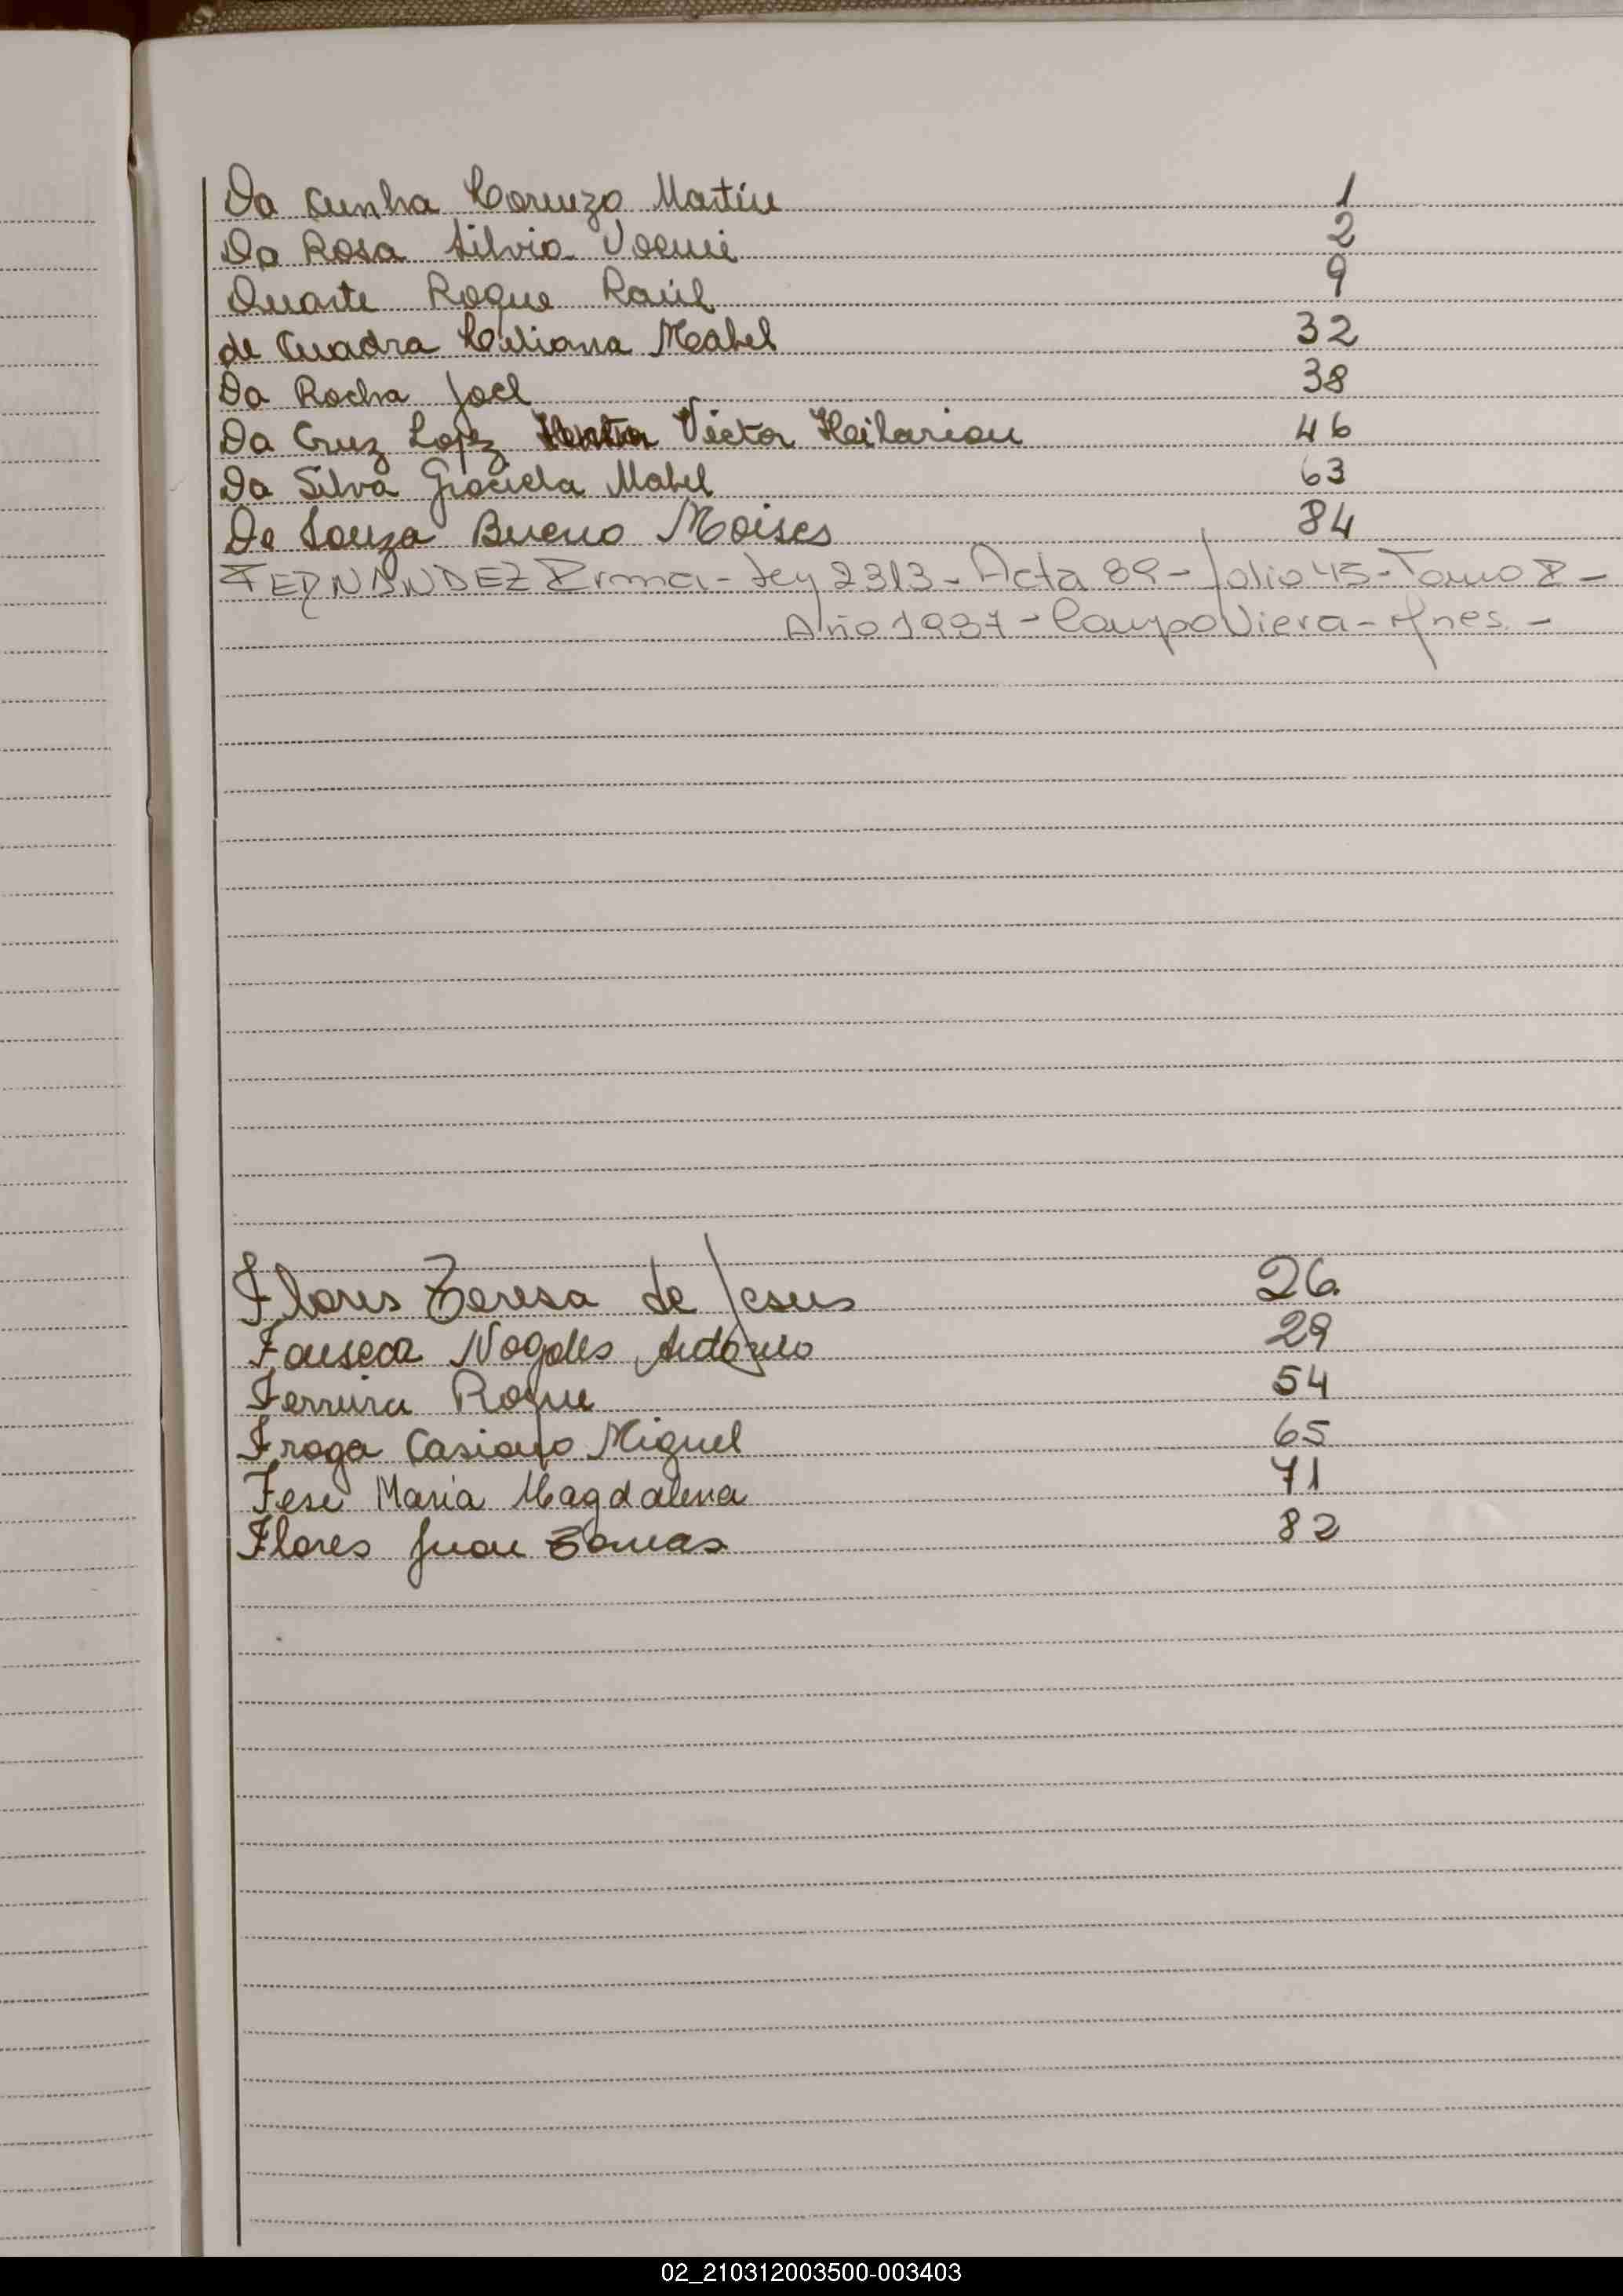 Da Cunha Lorenzo Martin 1
Da Rosa Silvia Noemi 2
Duarte Roque Raúl 9
de Cuadra Liliana Mabel 32
Da Rocha Joel 38
Da Cruz Lopez Victor Heilarion 46
Da Silva Graciela Mabel 63
De Souza Bueno Moises 84
FERNANDEZ Irma - Ley 2313 - Acta 89 - folio 45 - Tomo I -
Año 1997 - Campo Viera - Mnes. -
Flores Teresa de Jesus 26
Fonseca Nogales Antonio 29
Ferreira Roque 54
Fraga Casiano Miguel 65
Fese Maria Magdalena 71
Flores Juan Tomas 82
02_210312003500-003403